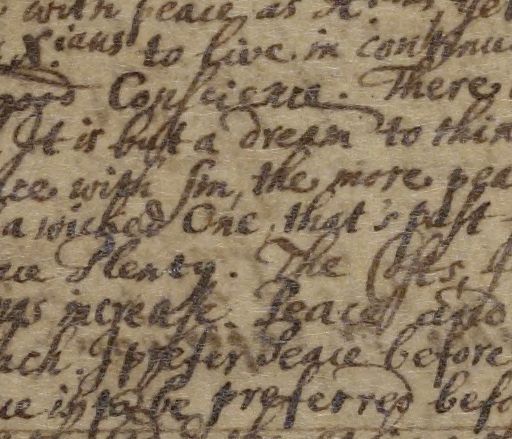 with peace as
X.ians to live in continu
good Conscience. There
It is but a dream to thin
ce with sin, the more pea
a wicked One, that's past
Plenty. The
increase. Peace and
uch. I prefer Peace before
ue is to be preferred befo